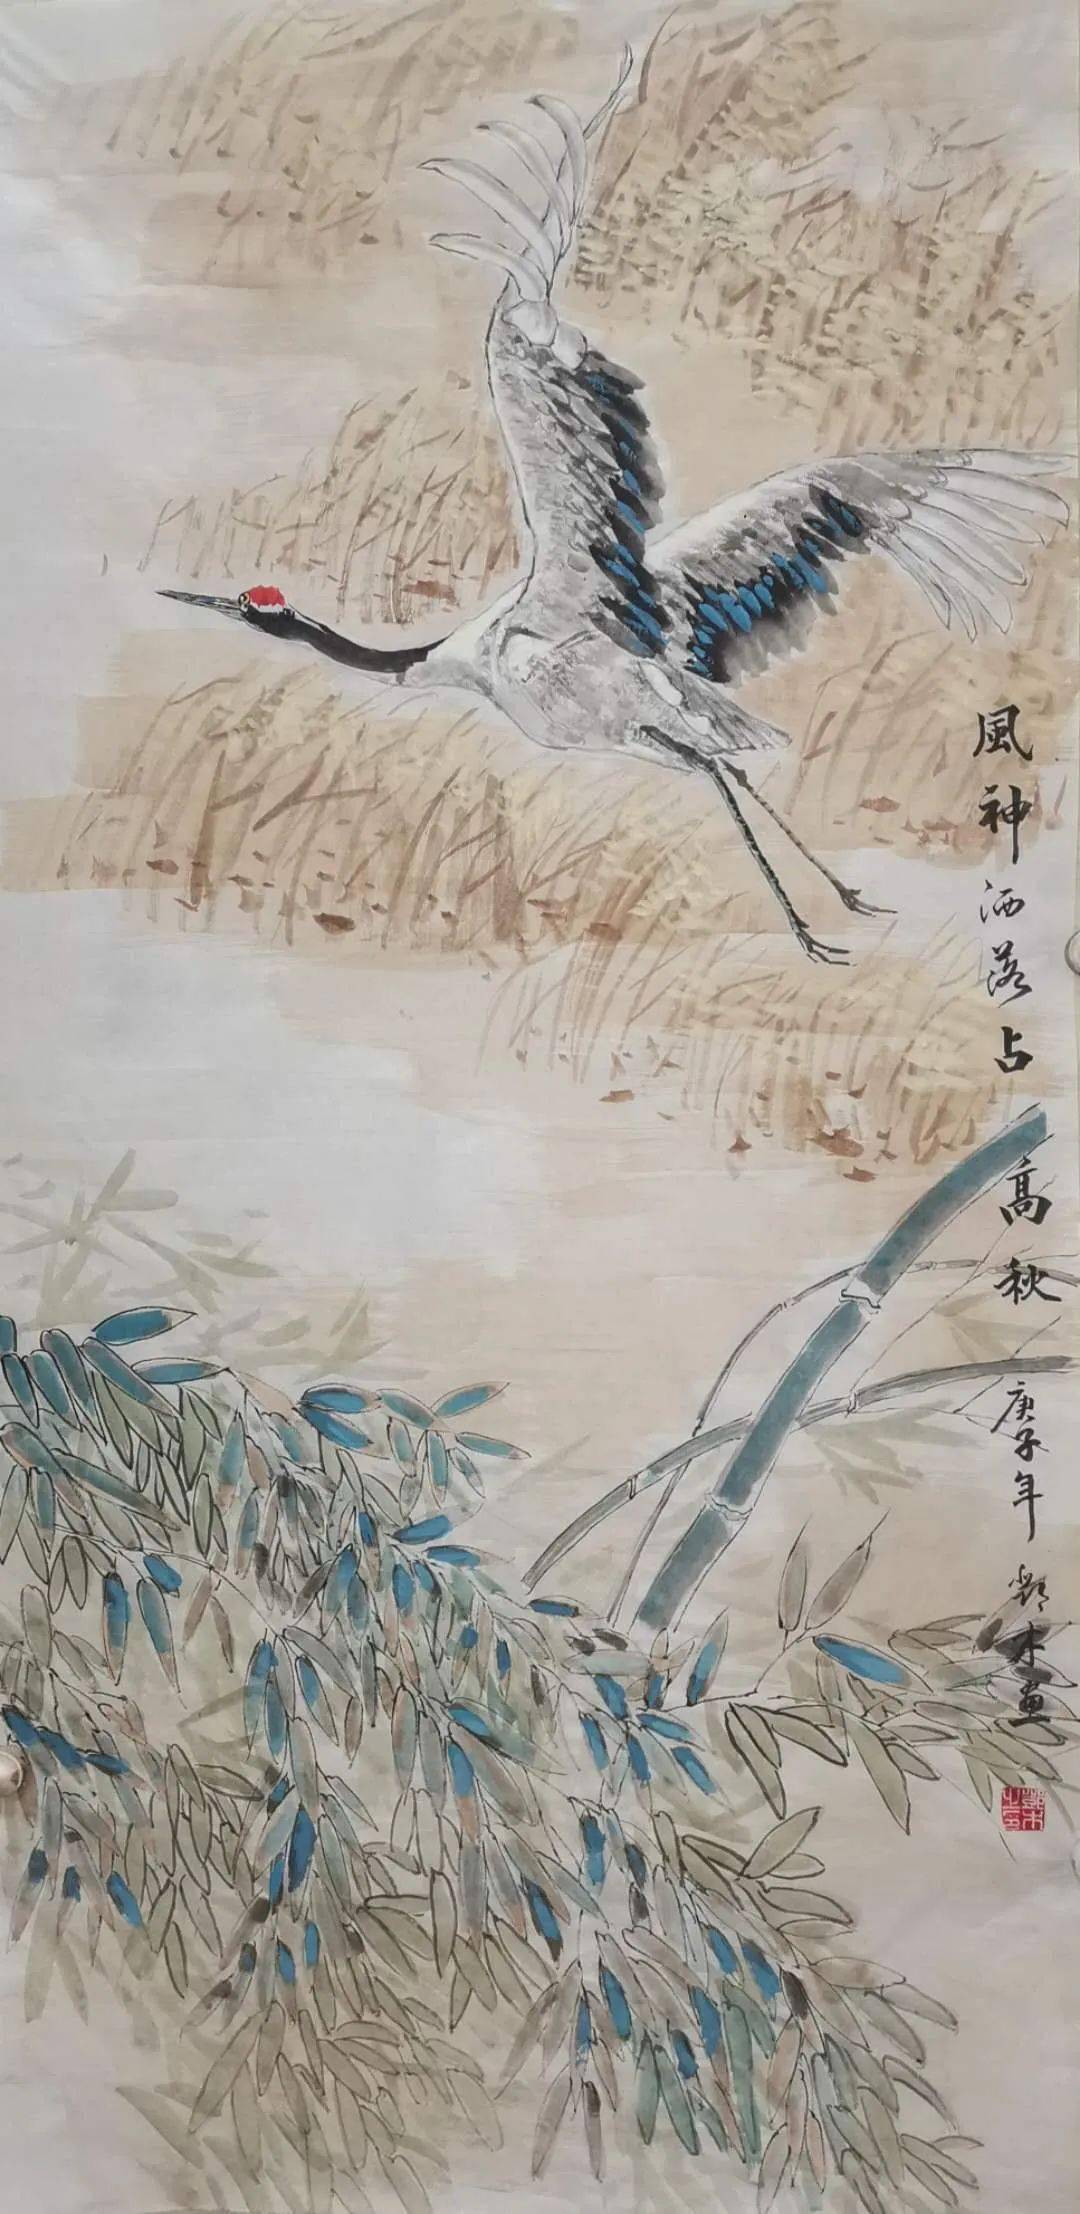 風神洒落占高秋庚子年木畫